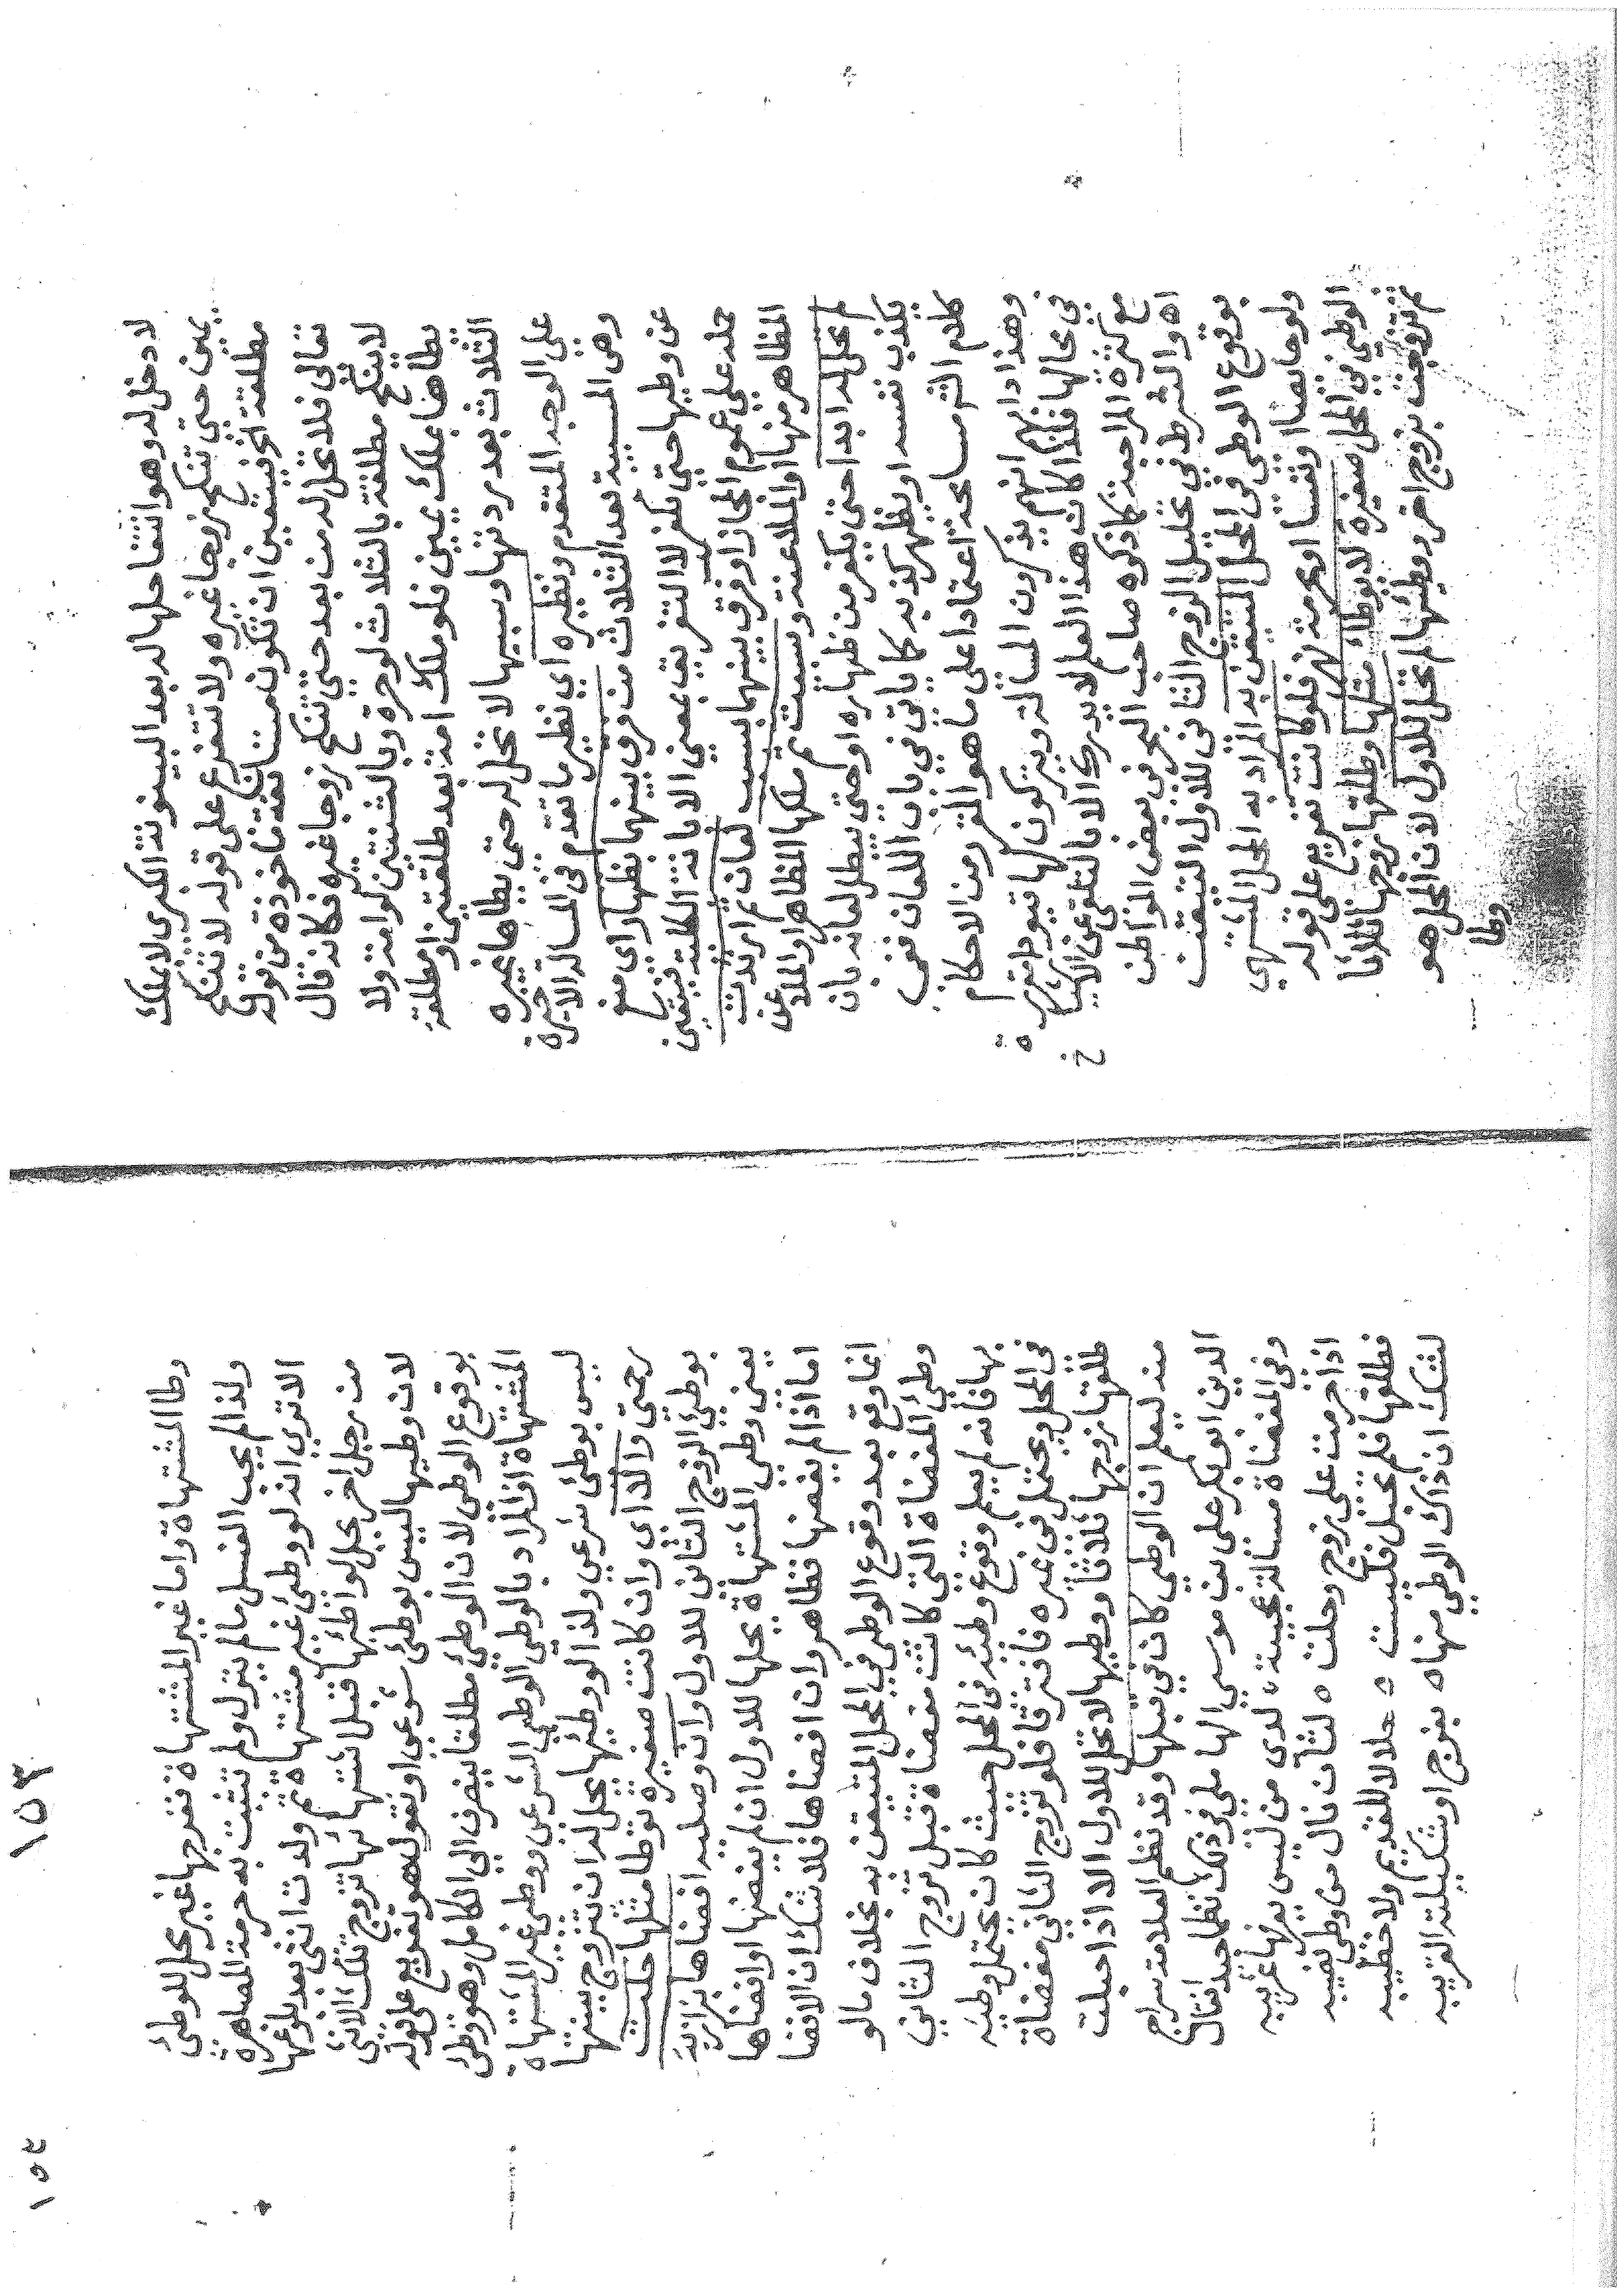 لا دخل له وهو انتفا حلها له بعد البينونة الكبرى لا بملك
يمين حتى تنكح زوجا غيره ولا تتفرع على قوله لا تنكح
مطلقة الخ فيتعين ان تكون مستانفة ماخوذة من قوله
تعالى فلا تحل له من بعد حتى تنكح زوجا غيره فكانه قال
لا تنكح مطلقة بالثلاث لو حرة وبالثنتين لو امة ولا
يطاها بملك يمين فلو ملك امة بعد طلقتين او مطلقة
الثلاث بعد ردتها وسبيها لا تحل له حتى يطاها غيره
على الوجه المتقدم ونظيره اي نظير ما تقدم في المسالة الاخيرة
وهي المسبية بعد الثلاث من فرق بينهما بظهار اى منع
عن وطيها حتى يكفر لا التفريق بمعنى الابانة الكلية فيتعين
حمله على عموم المجاز او فرق بينهما بسبب لعان ثم ارتدت
المظاهر منها او الملاعنة وسبيت ثم ملكها المظاهر او الملاعن
لم تحل له ابدا حتى يكفر من ظهاره او حتى يبطل لعانه بان
يكذب نفسه او يظهر كذبه كما ياتي في باب اللعان ففي
كلام الشرح مسامحة اعتمادا على ما هو المقرر من الاحكام
وهذا دابهم انهم يذكرون المسالة ويتركون لها قيودا مقررة
في محالها فلذا كان هذا العلم لا يدرك الا بالتلقي عن الاشياخ
مع كثرة المراجعة كما ذكره صاحب البحر في بعض المواطن
اه والشرط في تحليل الزوج الثاني للاول التيقن
بوقوع الوطئ في المحل المتيقن به المراد به المحل المشتهى
ولو حايضا او نفسا او محرمة فلو كانت تفريع على قوله
الوطئ في المحل صغيرة لا يوطأ مثلها وطلقها زوجها ثلاثا
ثم تزوجت بزوج اخر ووطئها لم تحل للاول لان المحل هو
وطا
١٥٣
وطا المشتهاة واما غير المشتهاة ففرجها غير محل للوطئ
ولذا لم يجب الغسل ما لم ينزل ولم تثبت به حرمة المصاهرة
الا ترى انه لو وطئ غير مشتهاة ثم ولدت انثى بعد بلوغها
من رجل اخر يحل لواطئها قبل اشتهائها تزوج تلك الانثى
لان وطيها ليس بوطئ شرعي او نقول هو تفريع على قوله
بوقوع الوطئ لان الوطئ مطلقا ينصرف الى الكامل وهو وطئ
المشتهاة اذ المراد بالوطئ الوطئ الشرعي ووطئ غير المشتهاة
ليس بوطئ شرعي ولذا لو وطئها يحل له ان يتزوج ببنتها
رحمتي والا اى وان كانت صغيرة يوطا مثلها حلت
بوطئ الزوج الثاني للاول وانه وصلية افضاها بزازية
يعني وطئ المشتهاة يحلها للاول ان لم يفضها او افضاها
اما اذا لم يفضها فظاهر وان افضاها فلا شك ان الافضا
انما وقع بعد وقوع الوطئ في المحل المتيقن به بخلاف ما لو
وطئ المفضاة التي كانت مفضاة قبل تزوج الثاني
بها فانه لم يعلم وقوع وطئه في المحل حيث كان يحتمل وطيه
في المحل ويحتمل في غيره فافترقا فلو تزوج الثاني مفضاة
طلقها زوجها ثلاثا ووطيها لا تحل للاول الا اذا حبلت
منه ليعلم ان الوطئ كان في قبلها وقد نظم العلامة سراج
الدين ابو بكر علي بن موسى الهاملي في ذلك نظما جيدا فقال
وفي المفضاة مسالة عجيبة ، لدى من ليس يعرفها غريبه
اذا حرمت على زوج وحلت ٥ لثان نال من وطئ نصيبه
فطلقها فلم تحبل فليست ٥ حلالا للقديم ولا خطيبه
لشك ان ذاك الوطئ منها ٥ بفرج او شكيلته القريبه
١٥٤